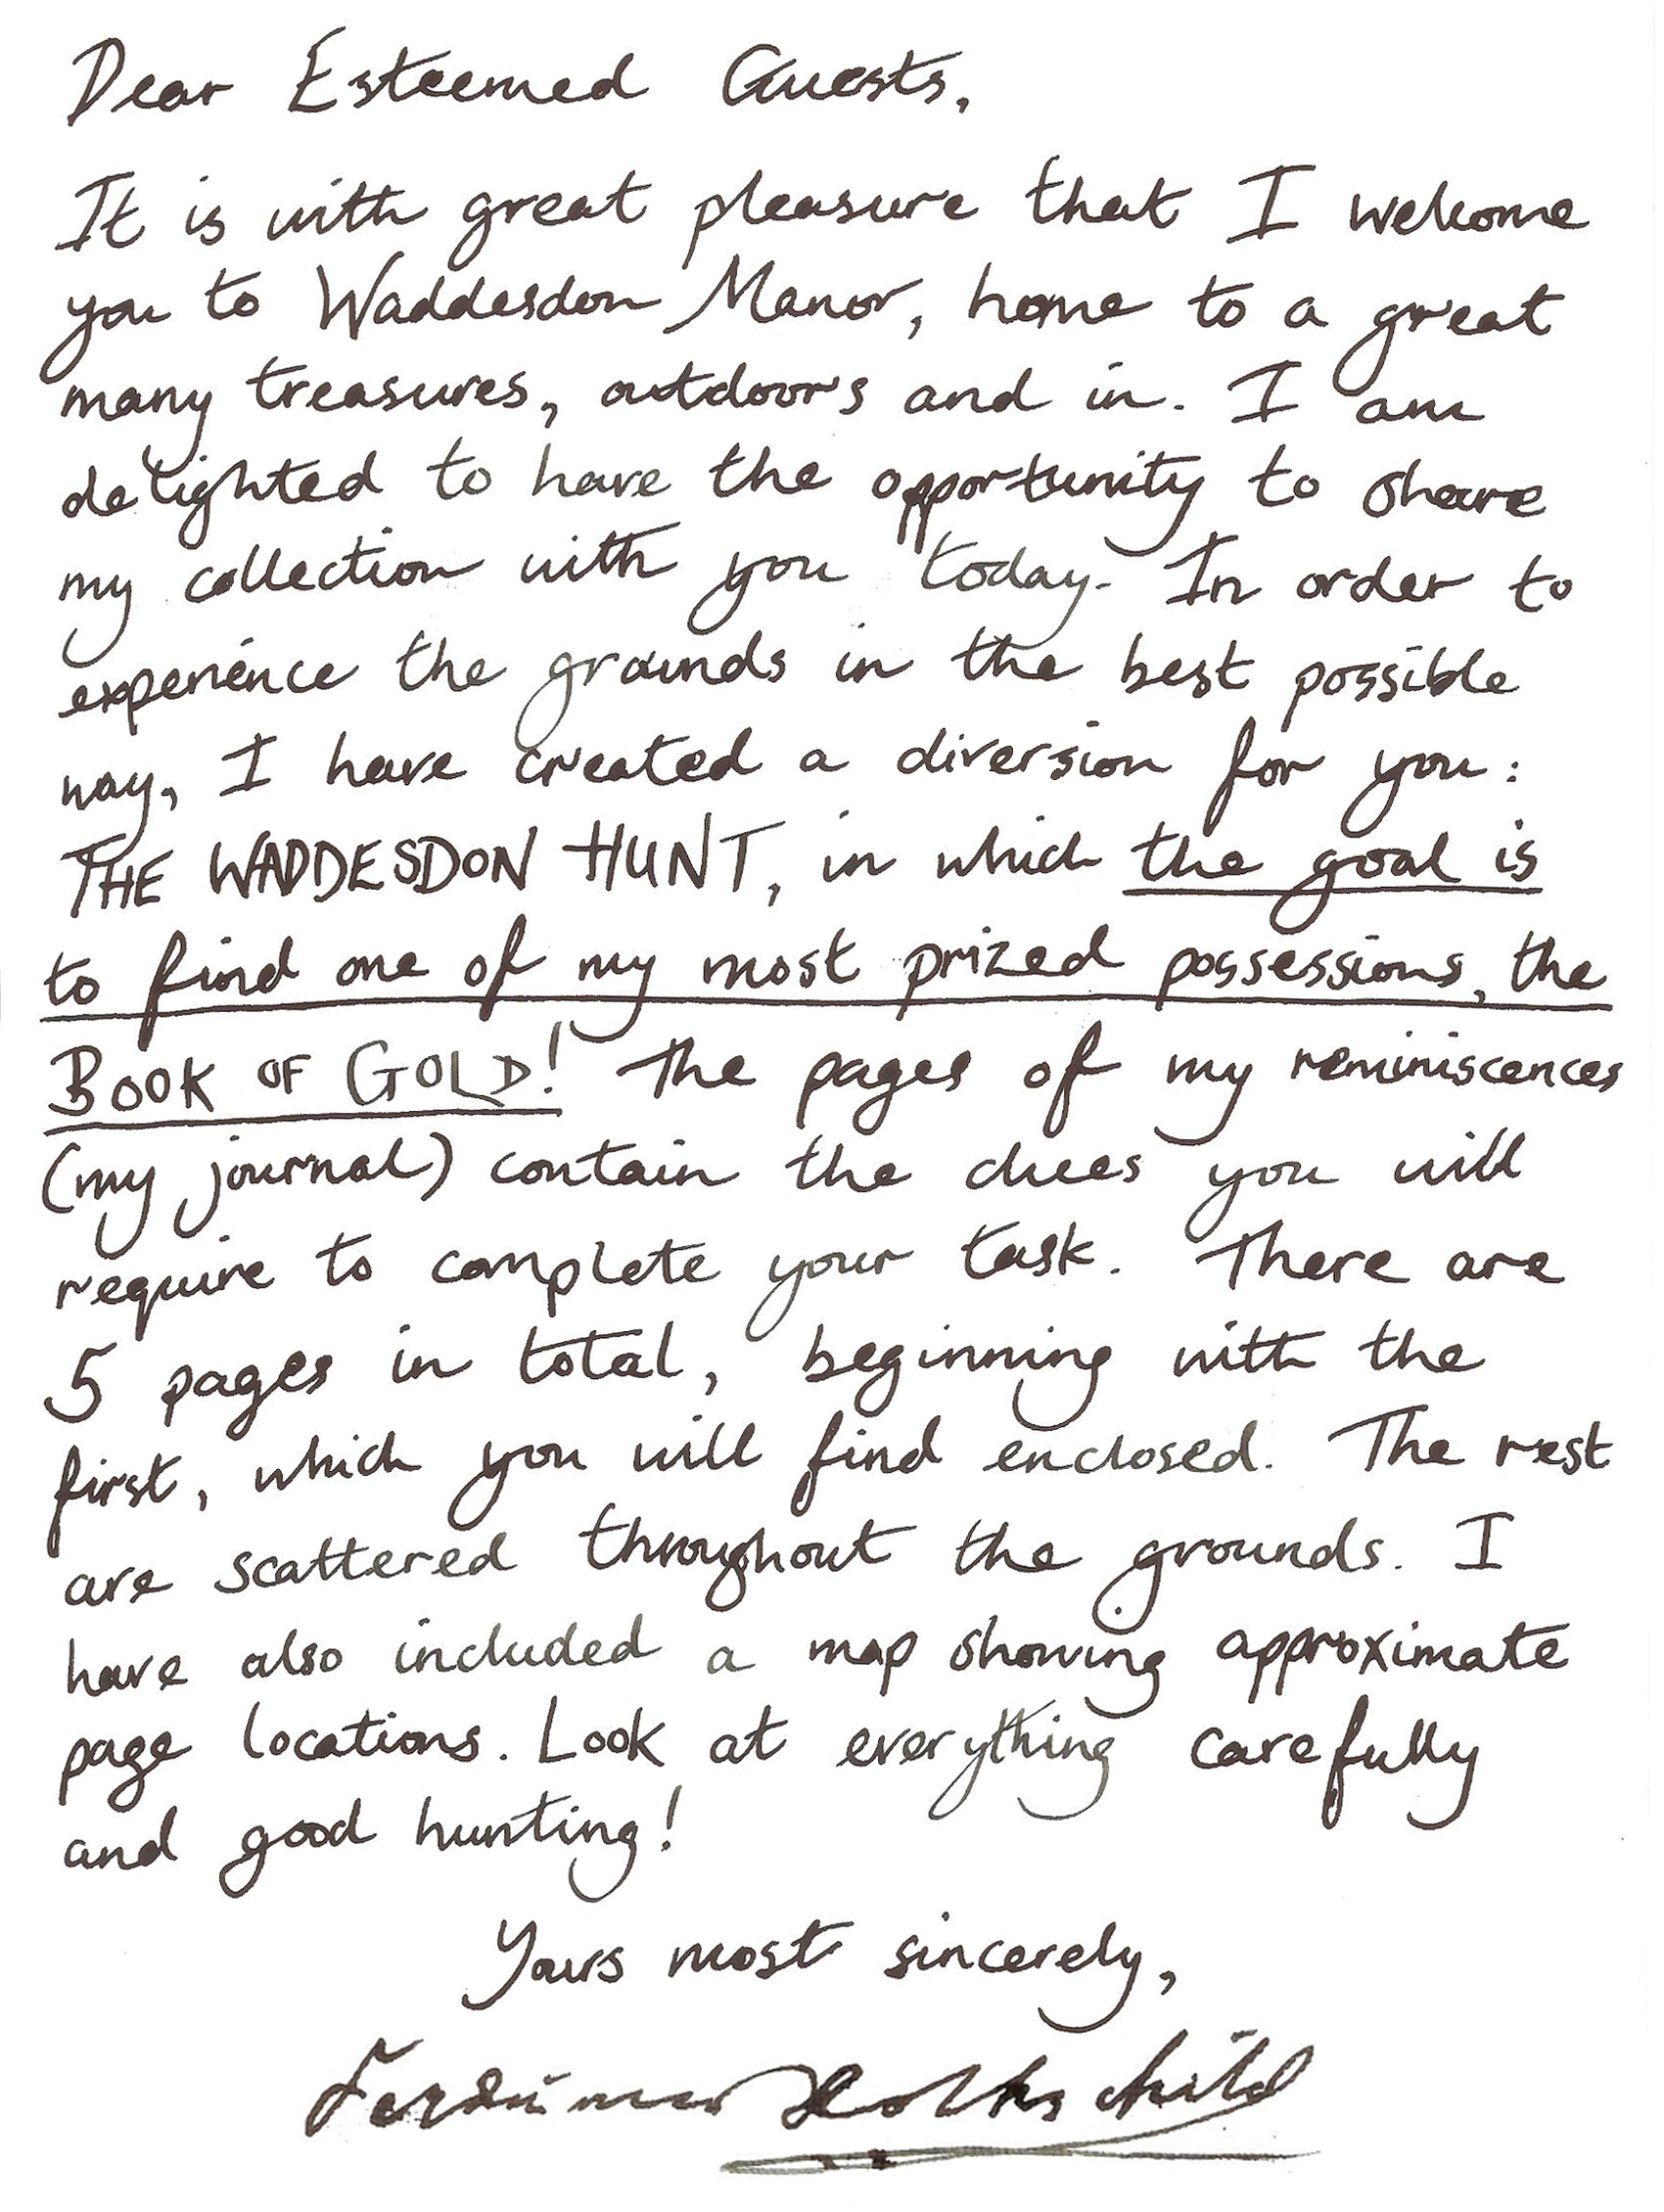 Dear Esteemed Guests,
It is with great pleasure that I welcome
you to Waddesdon Manor, home to a great
many treasures, outdoors and in. I am
delighted to have the opportunity to share
my collection with you today. In order to
experience the grounds in the best possible
way, I have created a diversion for you:
THE WADDESDON HUNT, in which the goal is
to find one of my most prized possessions, the
BOOK OF GOLD! The pages of my reminiscences
(my journal) contain the clues you will
require to complete your task. There are
5 pages in total, beginning with the
first, which you will find enclosed. The rest
are scattered throughout the grounds. I
have also included a map showing approximate
page locations. Look at everything carefully
and good hunting!
Yours most sincerely,
Ferdinand Rothschild